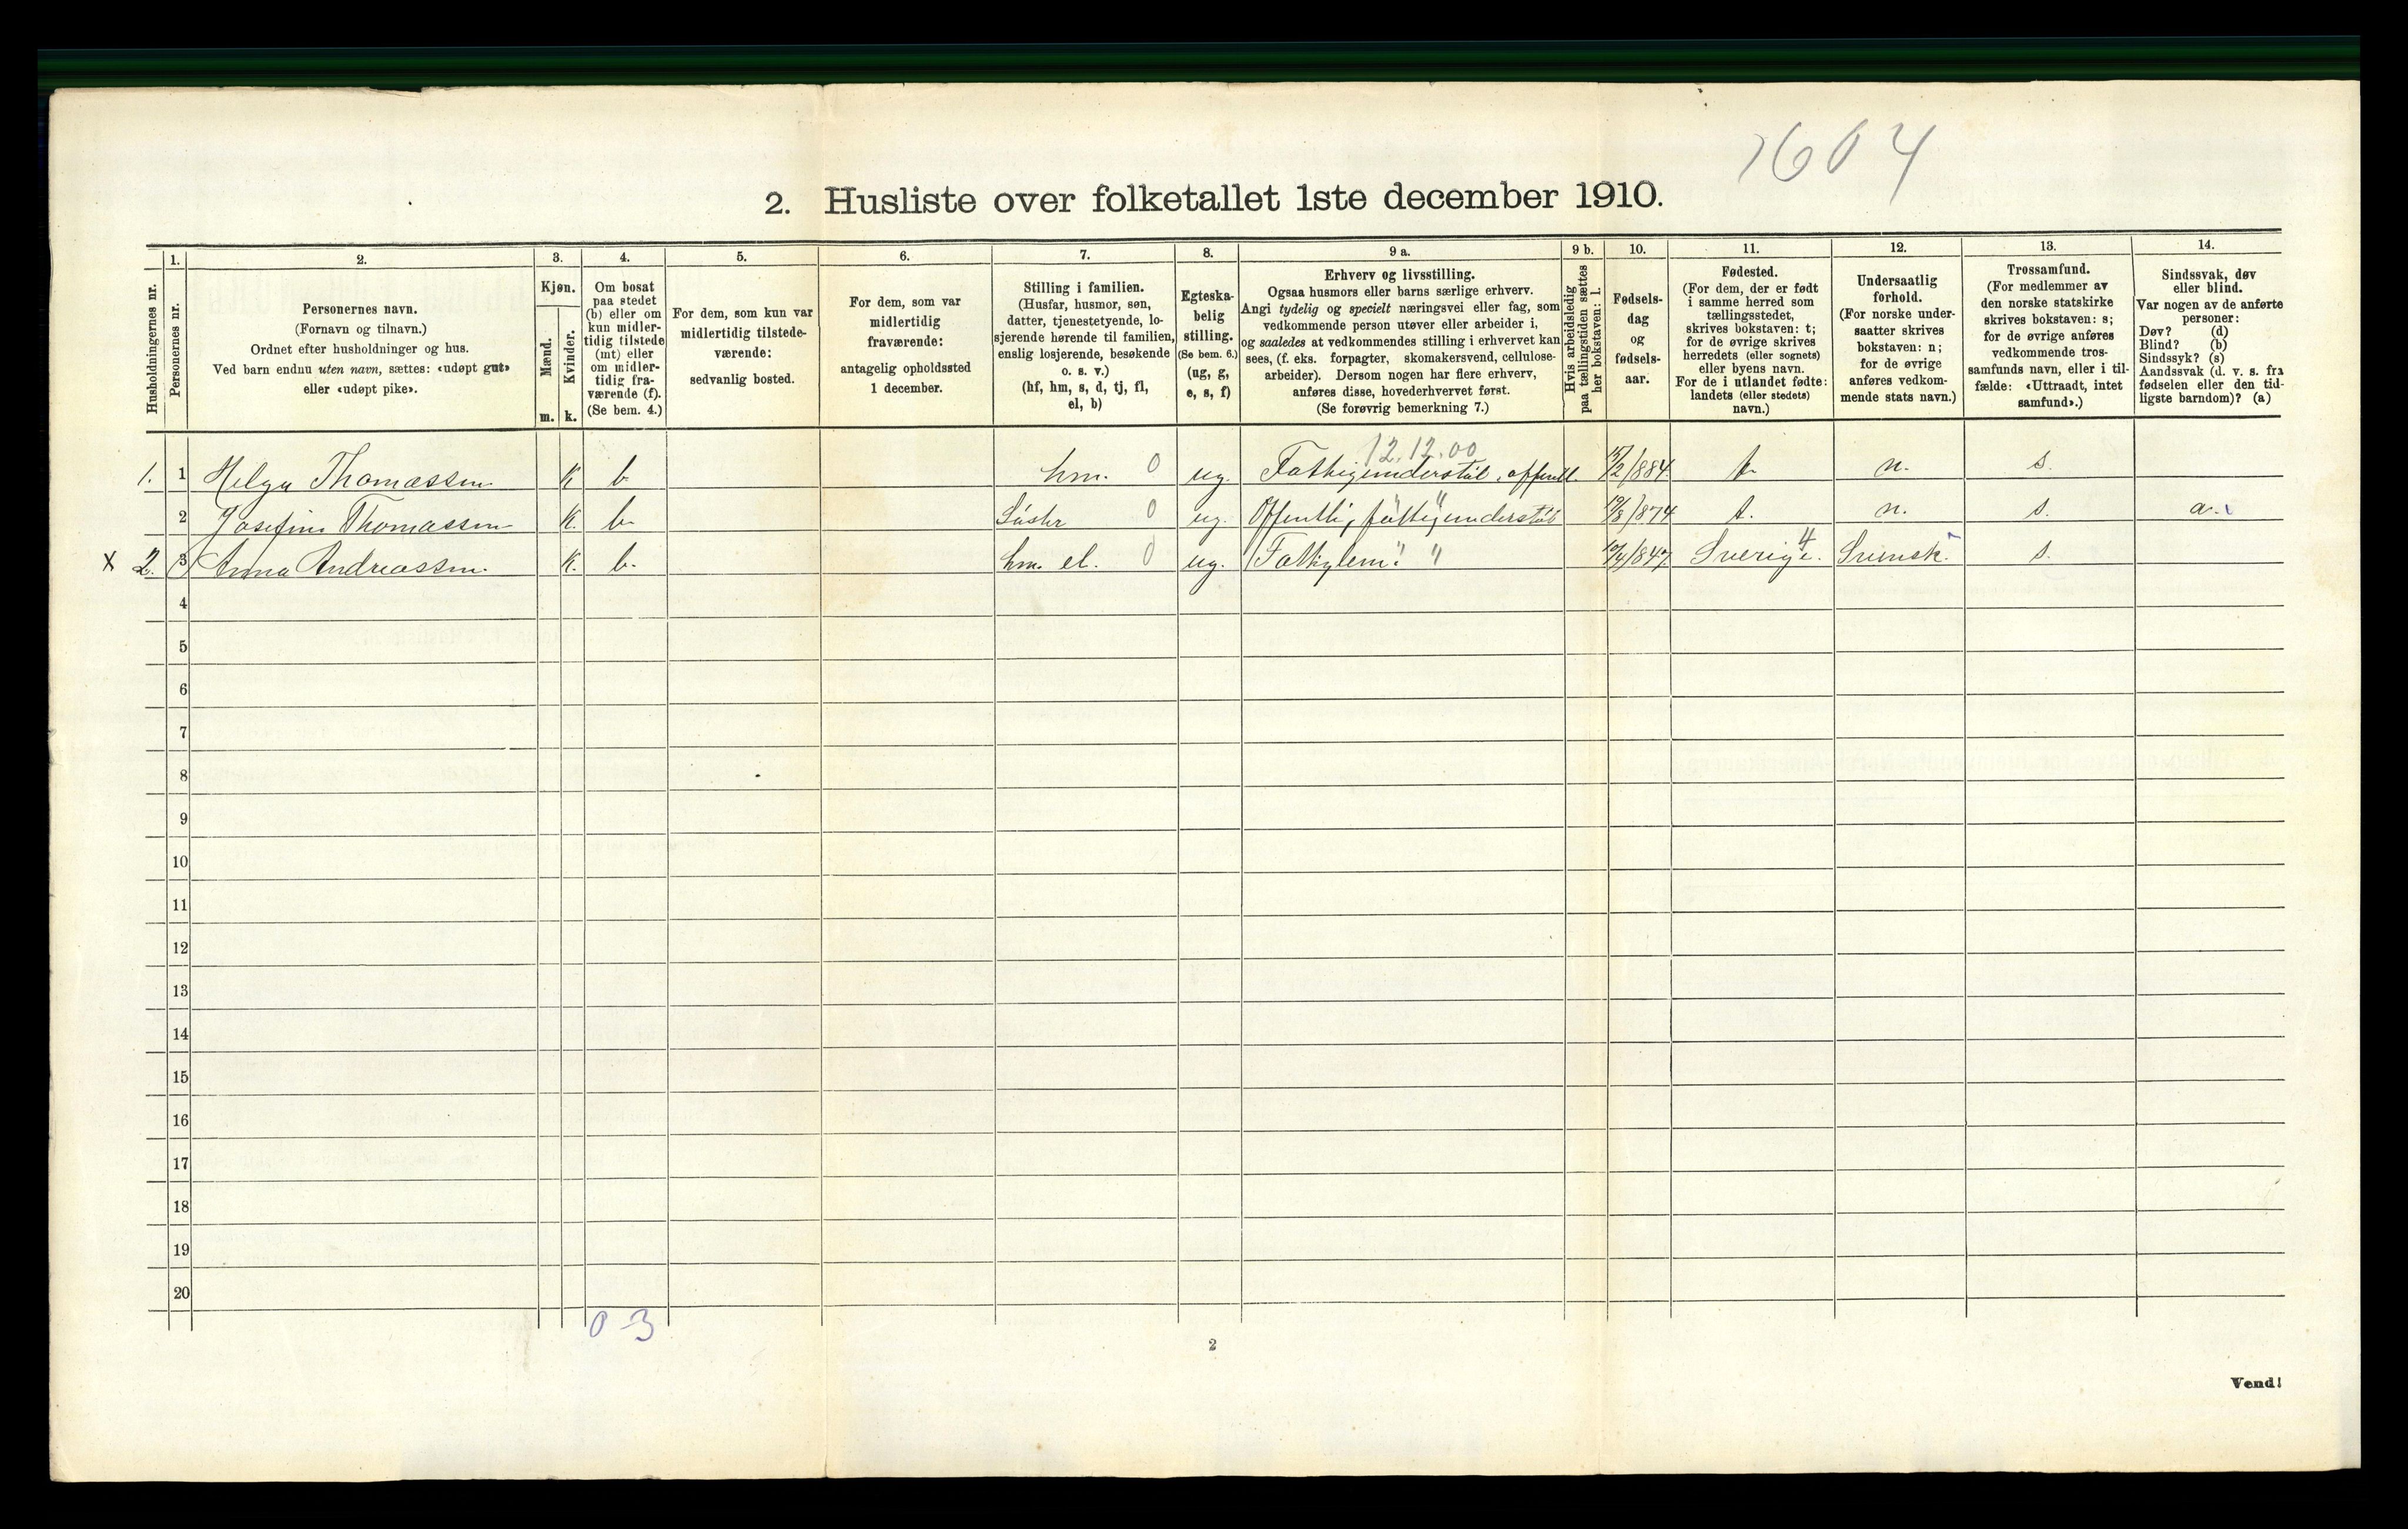 1604
2. Husliste over folketallet 1ste december 1910.
Husholdningernes nr.
1.
Personernes nr.
2.
Personernes navn.
(Fornavn og tilnavn.)
Ordnet efter husholdninger og hus.
Ved barn endnu uten navn, sættes: «udøpt gut»
eller «udøpt pike».
3.
Kjøn.
Mænd.
Kvinder.
m. k.
4.
Om bosat
paa stedet
(b) eller om
kun midler-
tidig tilstede
(mt) eller
om midler-
tidig fra-
værende (f).
(Se bem. 4.)
5.
For dem, som kun var
midlertidig tilstede-
værende:
sedvanlig bosted.
6.
For dem, som var
midlertidig
fraværende:
antagelig opholdssted
1 december.
7.
Stilling i familien.
(Husfar, husmor, søn,
datter, tjenestetyende, lo-
sjerende hørende til familien,
enslig losjerende, besøkende
o. s. v.)
(hf, hm, s, d, tj, fl,
el, b)
8.
Egteska-
belig
stilling.
(Se bem. 6.)
(ug, g,
e, s, f)
9 a.
Erhverv og livsstilling.
Ogsaa husmors eller barns særlige erhverv.
Angi tydelig og specielt næringsvei eller fag, som
vedkommende person utøver eller arbeider i,
og saaledes at vedkommendes stilling i erhvervet kan
sees, (f. eks. forpagter, skomakersvend, cellulose-
arbeider). Dersom nogen har flere erhverv,
anføres disse, hovederhvervet først.
(Se forøvrig bemerkning 7.)
9 b.
Hvis arbeidsledig
paa tællingstiden sættes
her bokstaven: l.
10.
Fødsels-
dag
og
fødsels-
aar.
11.
Fødested.
(For dem, der er født
i samme herred som
tællingsstedet,
skrives bokstaven: t;
for de øvrige skrives
herredets (eller sognets)
eller byens navn.
For de i utlandet fødte:
landets (eller stedets)
navn.)
12.
Undersaatlig
forhold.
(For norske under-
saatter skrives
bokstaven: n;
for de øvrige
anføres vedkom-
mende stats navn.)
13.
Trossamfund.
(For medlemmer av
den norske statskirke
skrives bokstaven: s;
for de øvrige anføres
vedkommende tros-
samfunds navn, eller i til-
fælde: «Uttraadt, intet
samfund».)
14.
Sindssvak, døv
eller blind.
Var nogen av de anførte
personer:
Døv? (d)
Blind? (b)
Sindssyk? (s)
Aandssvak (d. v. s. fra
fødselen eller den tid-
ligste barndom)? (a)
12.12.00
1. 1 Helga Thomassen K b hm. 0 ug. Fattigunderstøt. offentl. 15/2 1884 t. n. s.
2 Josefine Thomassen K. b. Søster 0 ug. Offentli, fattigunderstøt /8 1874 t. n. s. a.
x 2. 3 Anna Andreassen. K. b. hm. el. 0 ug. Fattiglem " " /4 1847 Sverige. 4 Svensk. s.
4
5
6
7
8
9
10
11
12
13
14
15
16
17
18
19
20
0 3
2
Vend!